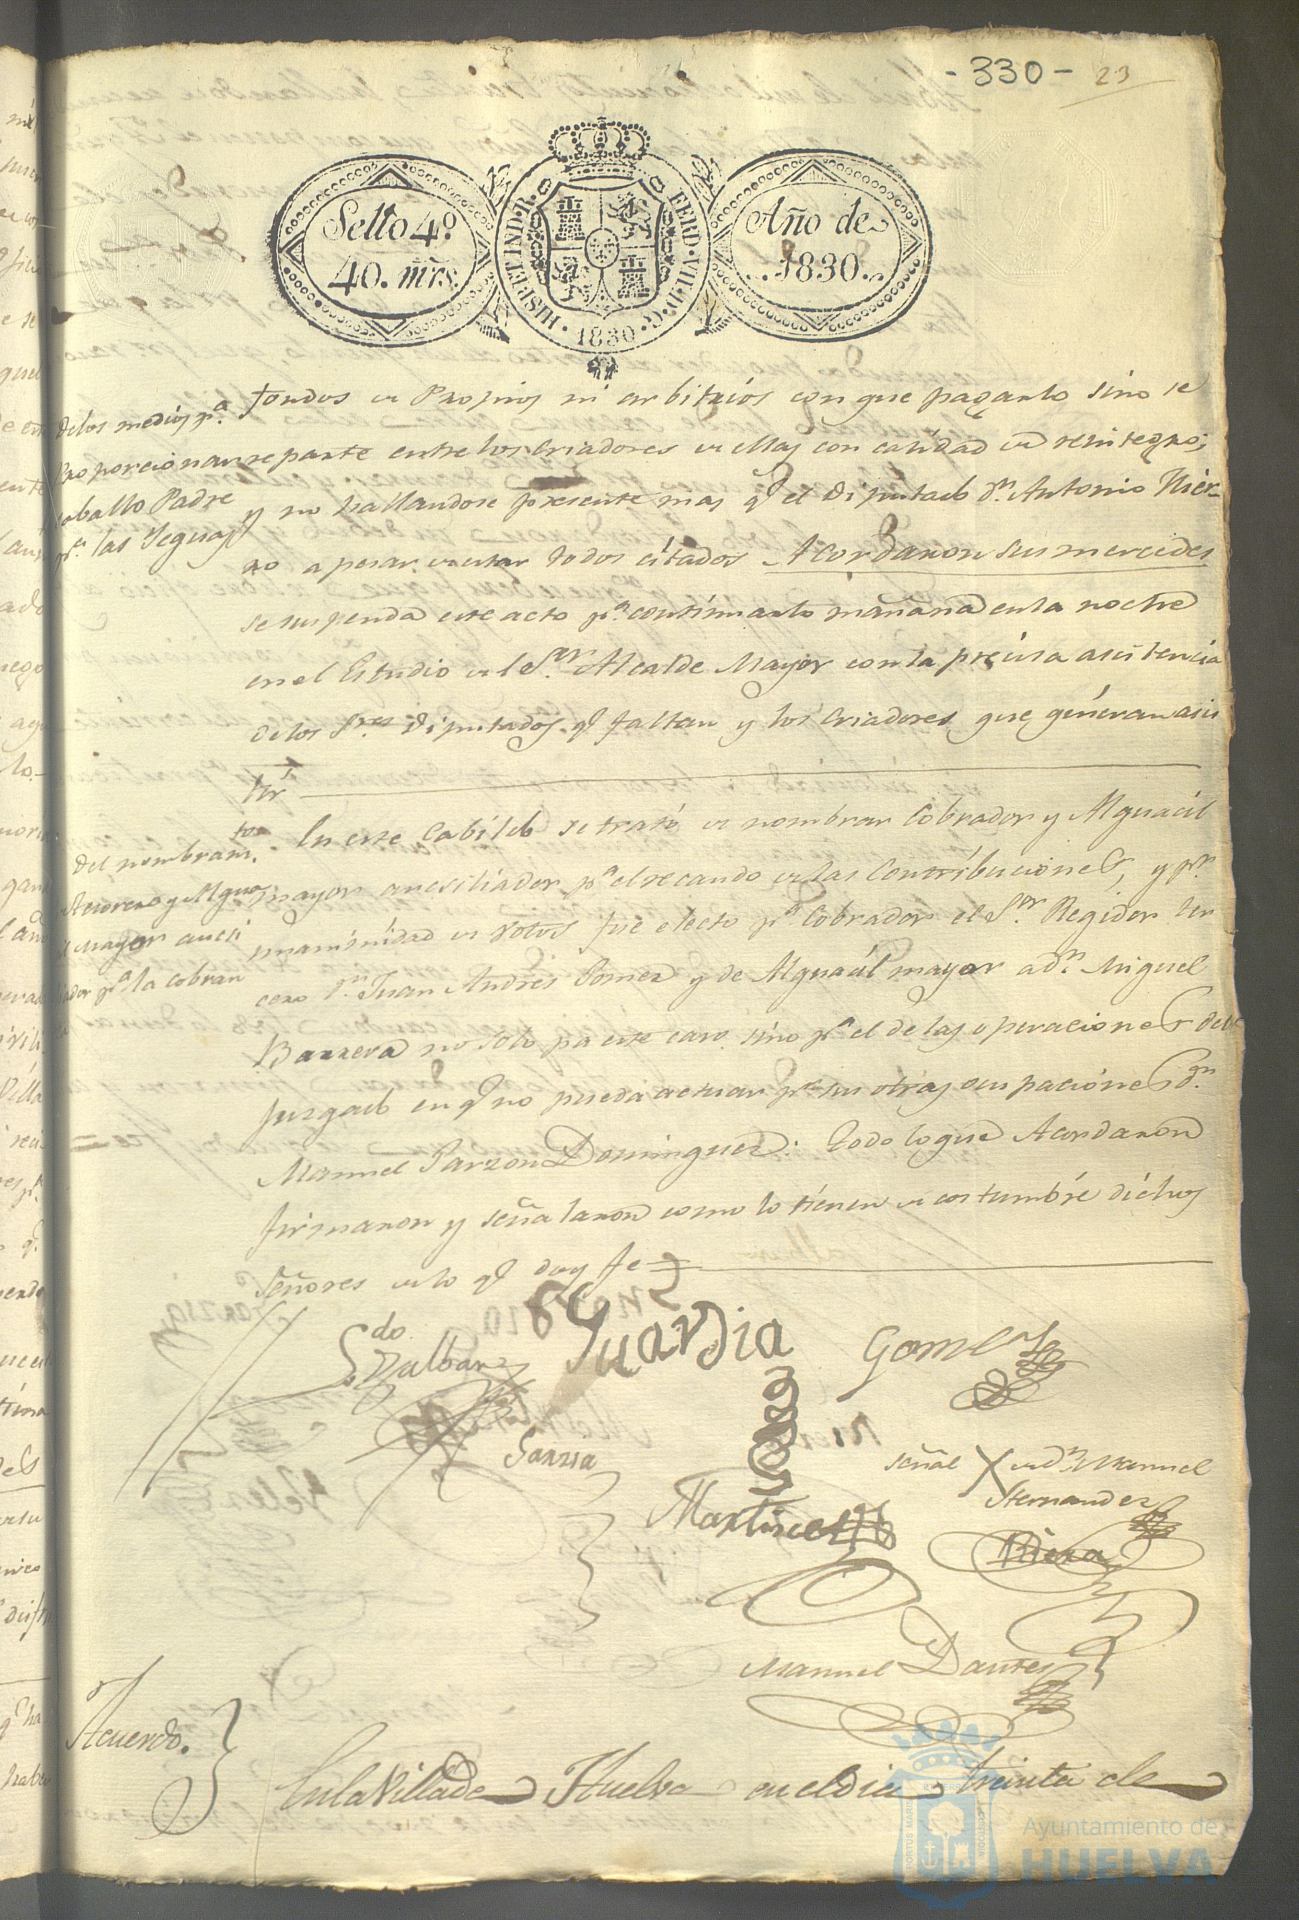 -330- 23
Sello 4º.
40. mrs.
HISP. ET IND. R.
FERD. VII. D. G.
1830
Año de
1830.
fondos de Propios ni arbitrios con que pagarlo sino se
reparte entre los Criadores de ellas con calidad de reintegro;
y no hallandose presente mas qe. el Diputado Dn. Antonio
a pesar de estar todos citados Acordaron sus mercedes
se suspenda este acto pa. continuarlo mañana en la noche
en el Estudio del Sor. Alcalde Mayor con la precisa asistencia
de los Sres. Diputados qe. faltan y los Criadores que quieran asis
tir
De los medios pa.
proporcionar
caballo Padre
pa. las Yeguas
En este Cabildo se trató de nombrar Cobrador y Alguacil
mayor aucsiliador pa. el recaudo de las Contribuciones, y pr.
unanimidad de votos fue electo pa. Cobrador el Sor. Regidor ter
cero Dn. Juan Andres Gomez y de Alguacil mayor a Dn. Miguel
Barrera no solo pa este caso sino pa. el de las operaciones del
Juzgado en qe. no pueda actuar pr. sus otras ocupaciones Dn.
Manuel Garzon Dominguez: Todo lo que Acordaron
firmaron y señalaron como lo tienen de costumbre dichos
Señores de lo qe. doy fe
Del nombramto.
y Algua
l mayor aucsi
liador pa. la cobran
Ldo.
Zalbar
Guardia
Gomez
Garzia
señal X de Dn. Manuel
Hernandez
Martinez
Riera
Manuel Dantes
Acuerdo.
En la Villa de Huelva en el dia treinta de
Ayuntamiento de
HUELVA